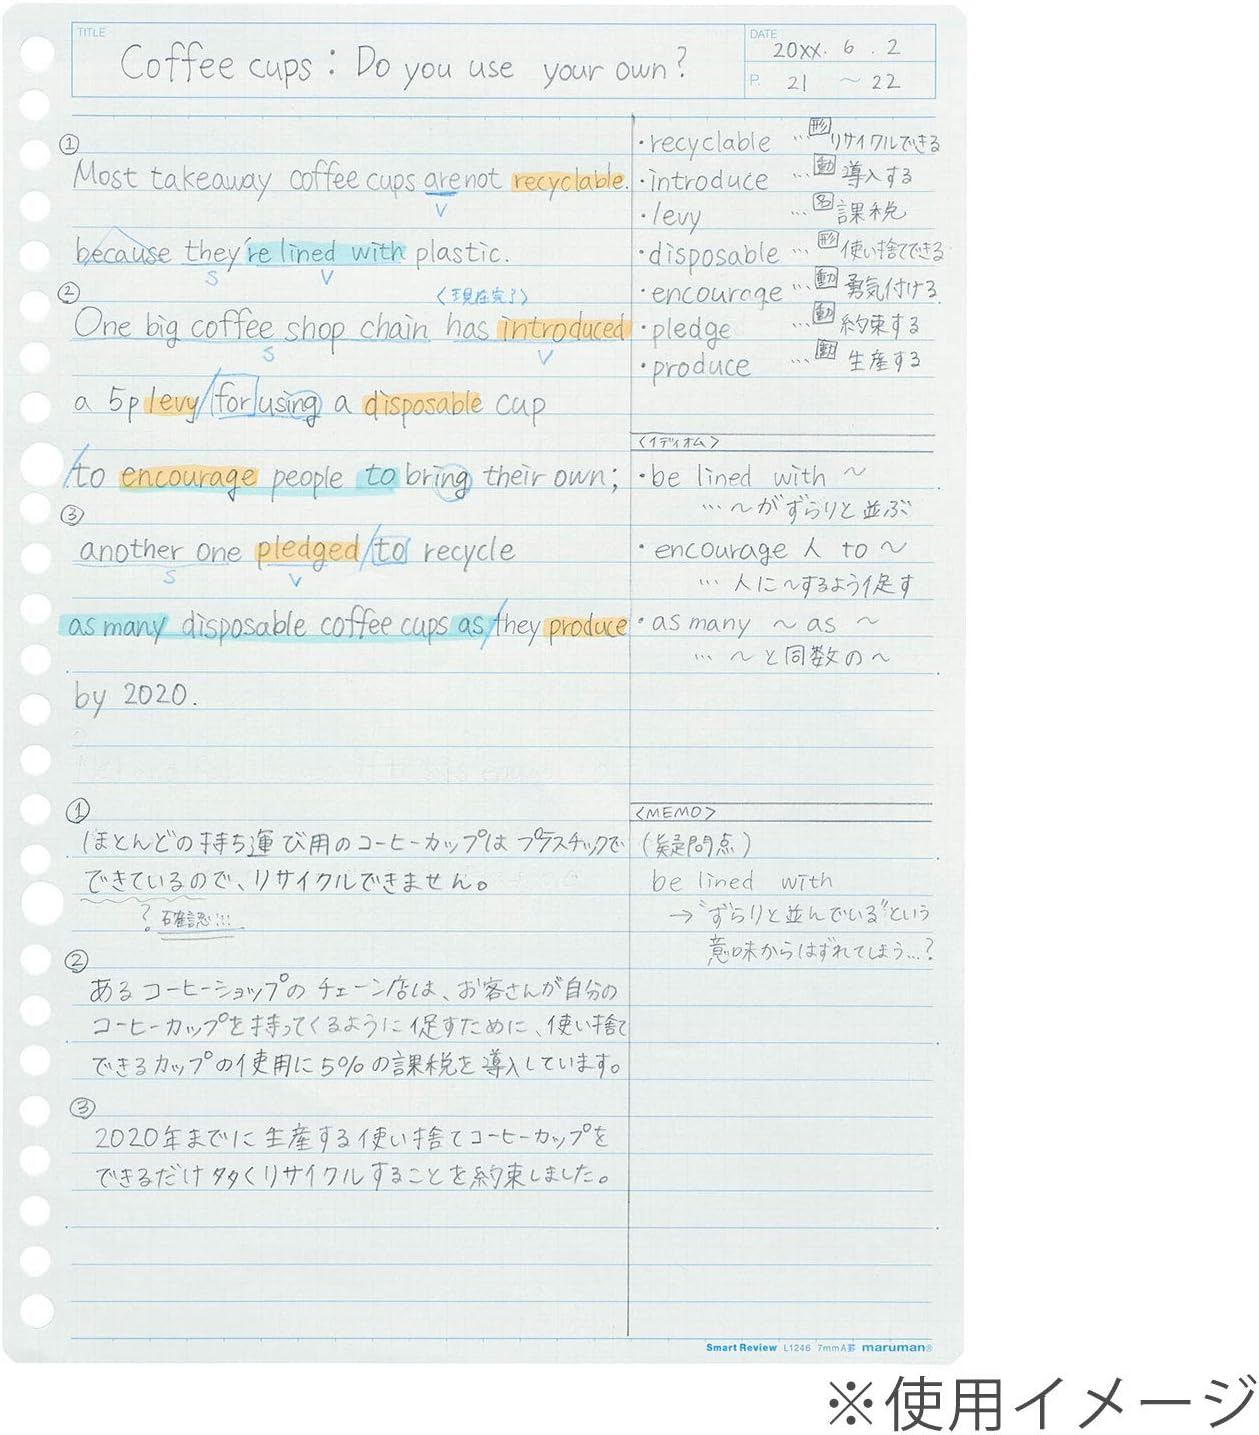 TITLE
Coffee cups : Do you use your own?
DATE
20xx. 6 . 2
P. 21 ～ 22
①
Most takeaway coffee cups are not recyclable.
V
because they're lined with plastic.
S V
②
〈現在完了〉
One big coffee shop chain has introduced
S V
a 5p levy/for using a disposable cup
/to encourage people to bring their own;
③
another one pledged/to recycle
S V
as many disposable coffee cups as/they produce
by 2020.
・recyclable … 形 リサイクルできる
・introduce … 動 導入する
・levy … 名 課税
・disposable … 形 使い捨てできる
・encourage … 動 勇気付ける
・pledge … 動 約束する
・produce … 動 生産する
〈イディオム〉
・be lined with ～
… ～がずらりと並ぶ
・encourage 人 to ～
… 人に～するよう促す
・as many ～ as ～
… ～と同数の～
①
ほとんどの持ち運び用のコーヒーカップはプラスチックで
できているので、リサイクルできません。
? 確認!!!
②
あるコーヒーショップのチェーン店は、お客さんが自分の
コーヒーカップを持ってくるように促すために、使い捨て
できるカップの使用に5%の課税を導入しています。
③
2020年までに生産する使い捨てコーヒーカップを
できるだけ多くリサイクルすることを約束しました。
〈MEMO〉
(疑問点)
be lined with
→"ずらりと並んでいる"という
意味からはずれてしまう…?
Smart Review L1246 7mmA罫 maruman®
※使用イメージ